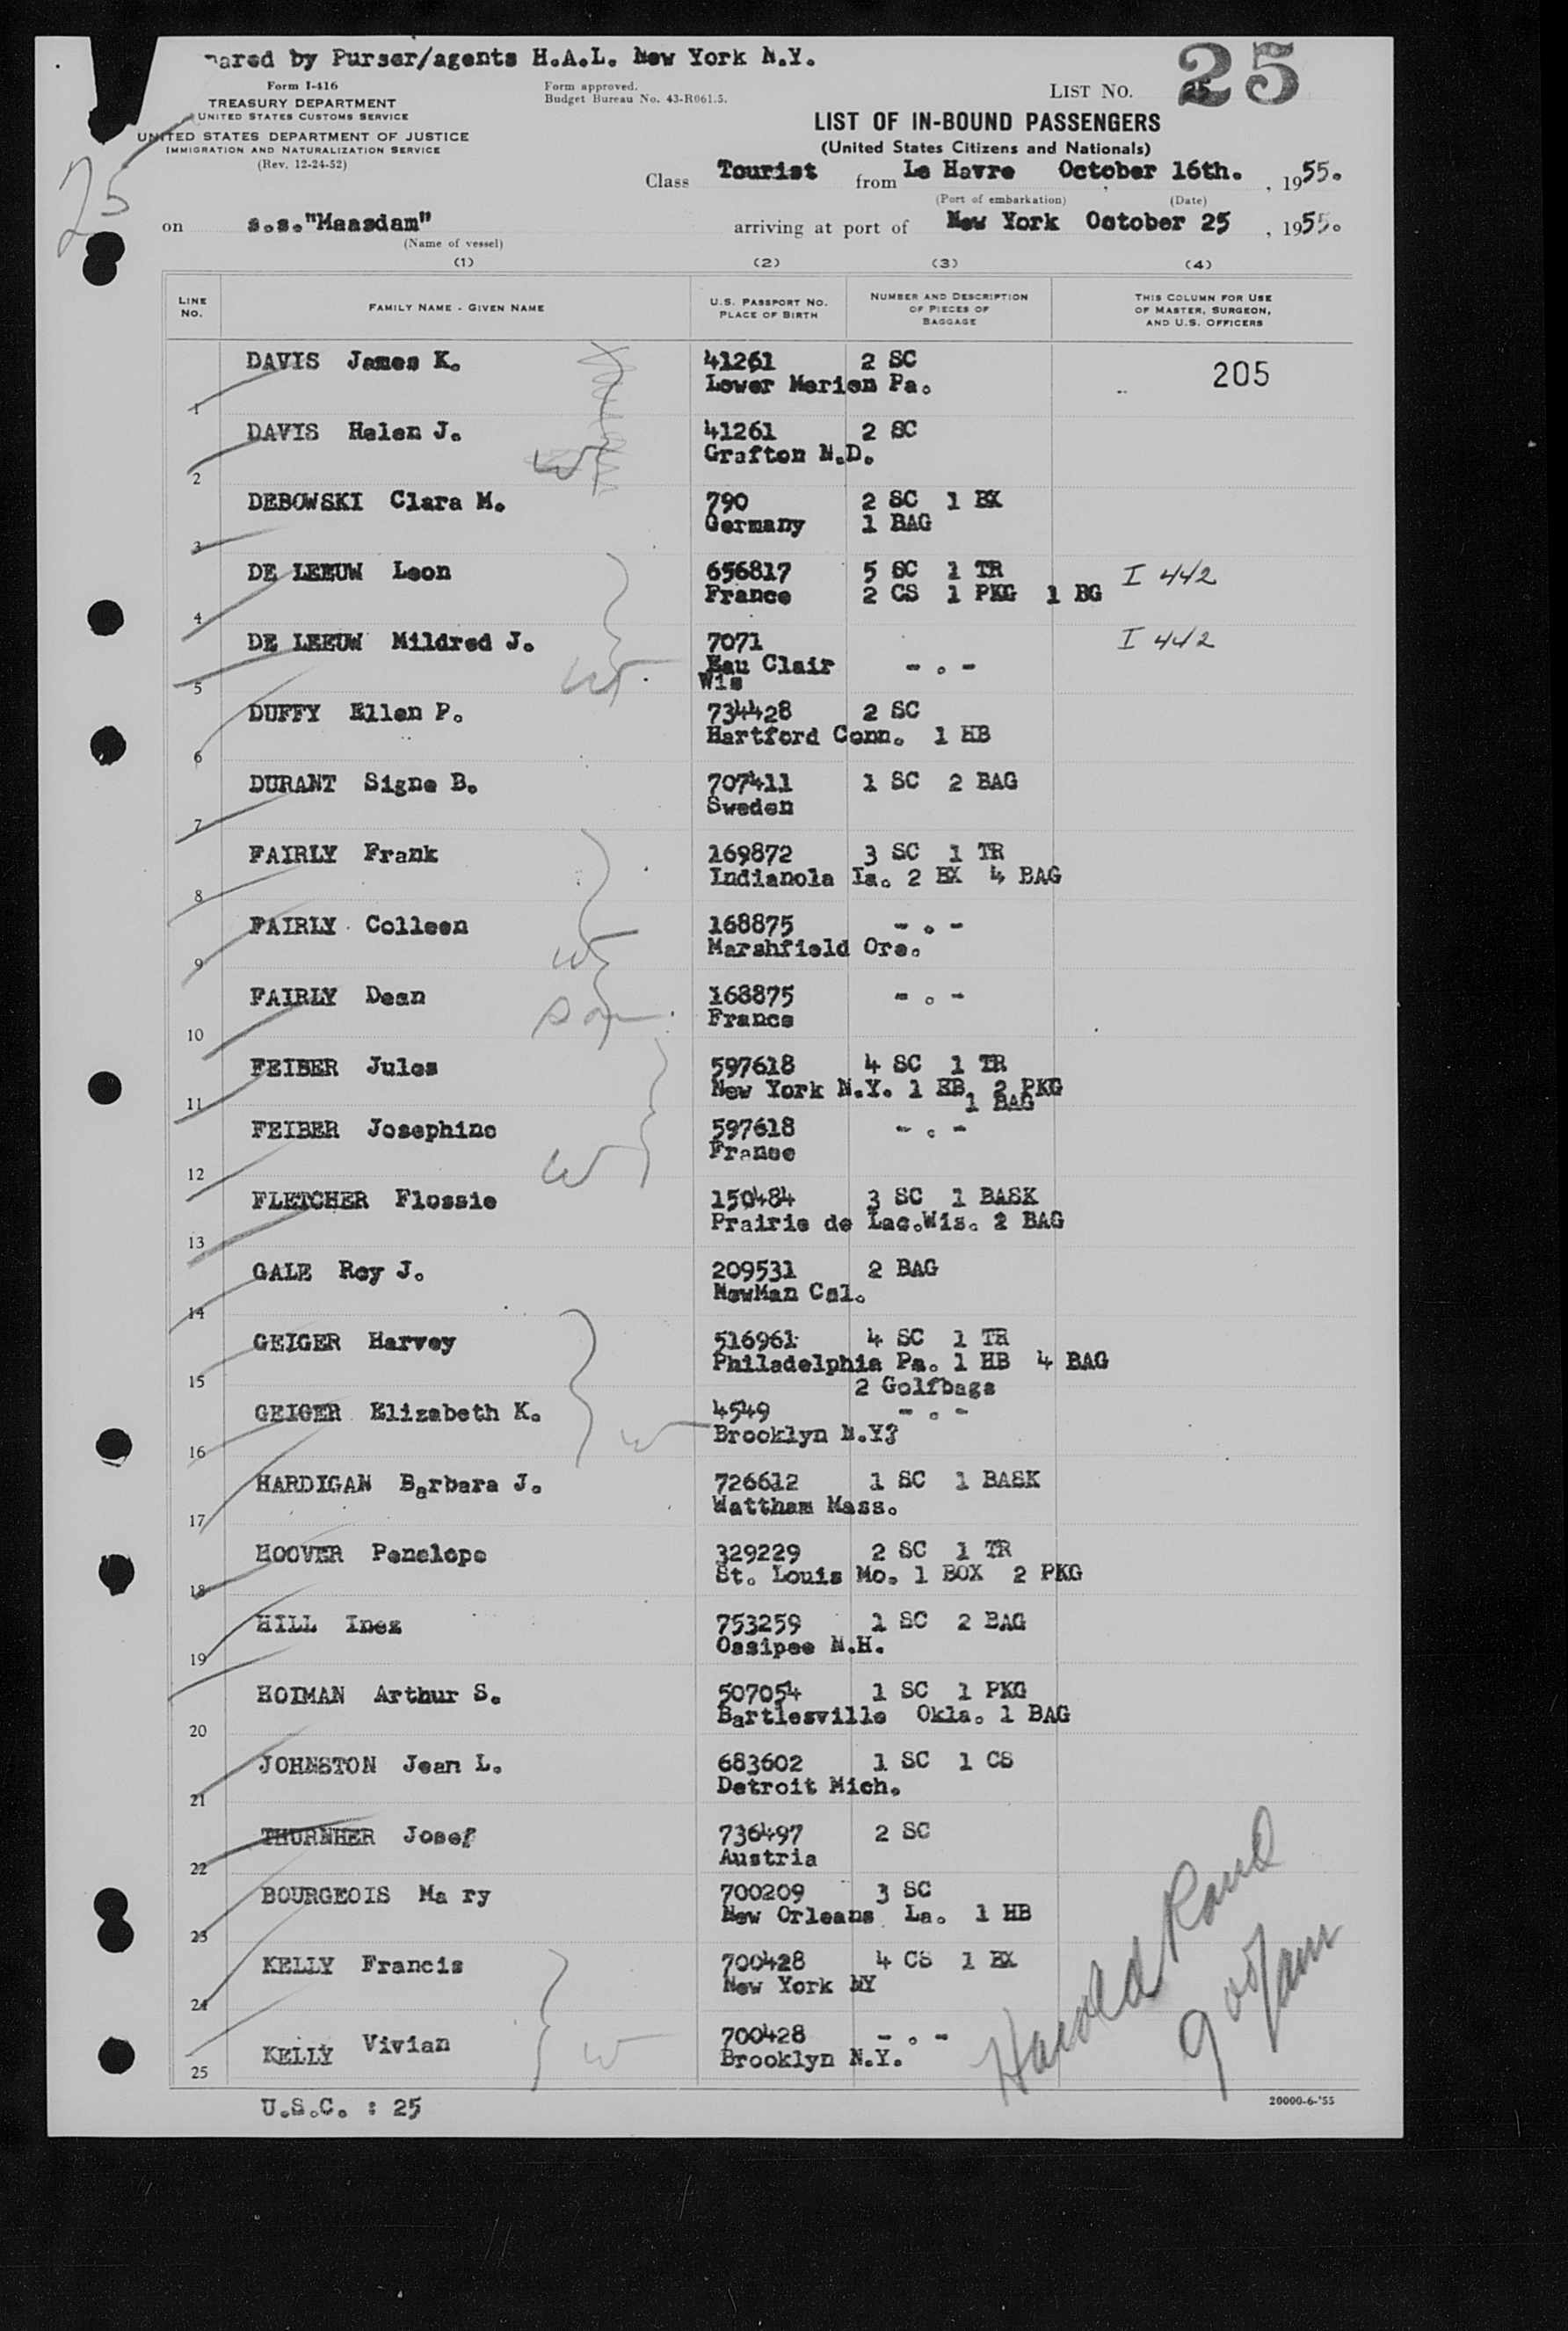 ared by Purser/agents H.A.L. New York N.Y.
Form I-416
TREASURY DEPARTMENT
UNITED STATES CUSTOMS SERVICE
UNITED STATES DEPARTMENT OF JUSTICE
IMMIGRATION AND NATURALIZATION SERVICE
(Rev. 12-24-52)
Form approved.
Budget Bureau No. 43-R061.5.
LIST NO. 25
25
LIST OF IN-BOUND PASSENGERS
(United States Citizens and Nationals)
Class Tourist from Le Havre October 16th. , 1955.
(Port of embarkation) (Date)
on s.s."Maasdam" arriving at port of New York October 25 , 1955.
(Name of vessel)
(1) (2) (3) (4)
LINE NO. FAMILY NAME - GIVEN NAME U.S. PASSPORT NO. PLACE OF BIRTH NUMBER AND DESCRIPTION OF PIECES OF BAGGAGE THIS COLUMN FOR USE OF MASTER, SURGEON, AND U.S. OFFICERS
DAVIS James K. 41261 2 SC 205
1 Lower Merion Pa.
DAVIS Helen J. 41261 2 SC
2 W Grafton N.D.
DEBOWSKI Clara M. 790 2 SC 1 BX
3 Germany 1 BAG
DE LEEUW Leon 656817 5 SC 1 TR I 442
4 France 2 CS 1 PKG 1 BG
DE LEEUW Mildred J. 7071 I 442
5 W Eau Clair -.-
Wis
DUFFY Ellen P. 734428 2 SC
6 Hartford Conn. 1 HB
DURANT Signe B. 707411 1 SC 2 BAG
7 Sweden
FAIRLY Frank 169872 3 SC 1 TR
8 Indianola Ia. 2 BX 4 BAG
FAIRLY Colleen 168875 -.-
9 W Marshfield Ore.
FAIRLY Dean 168875 -.-
10 Son France
FEIBER Jules 597618 4 SC 1 TR
11 New York N.Y. 1 HB 2 PKG
1 BAG
FEIBER Josephine 597618 -.-
12 W France
FLETCHER Flossie 150484 3 SC 1 BASK
13 Prairie de Lac.Wis. 2 BAG
GALE Roy J. 209531 2 BAG
14 NewMan Cal.
GEIGER Harvey 516961 4 SC 1 TR
15 Philadelphia Pa. 1 HB 4 BAG
2 Golfbags
GEIGER Elizabeth K. 4549 -.-
16 W Brooklyn N.Y?
HARDIGAN Barbara J. 726612 1 SC 1 BASK
17 Wattham Mass.
HOOVER Penelope 329229 2 SC 1 TR
18 St. Louis Mo. 1 BOX 2 PKG
HILL Inez 753259 1 SC 2 BAG
19 Ossipee N.H.
HOIMAN Arthur S. 507054 1 SC 1 PKG
20 Bartlesville Okla. 1 BAG
JOHNSTON Jean L. 683602 1 SC 1 CS
21 Detroit Mich.
THURNHER Josef 736497 2 SC
22 Austria
BOURGEOIS Ma ry 700209 3 SC
23 New Orleans La. 1 HB
KELLY Francis 700428 4 CS 1 BX
24 New York NY
KELLY Vivian 700428 -.-
25 W Brooklyn N.Y.
Harold Rand
9 05/am
U.S.C. : 25
20000-6-'55